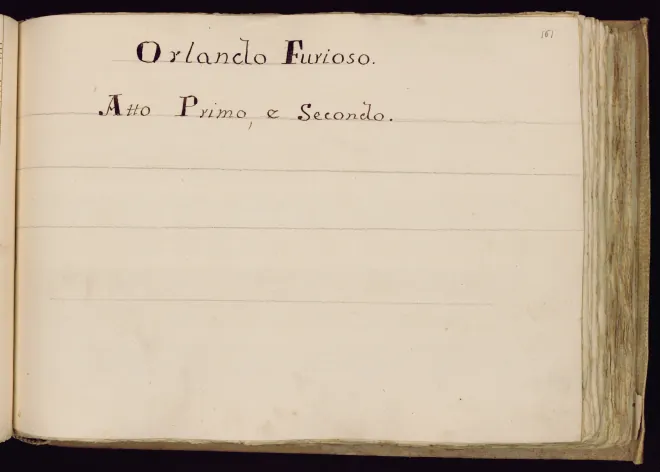 Orlando Furioso.
Atto Primo, e Secondo.